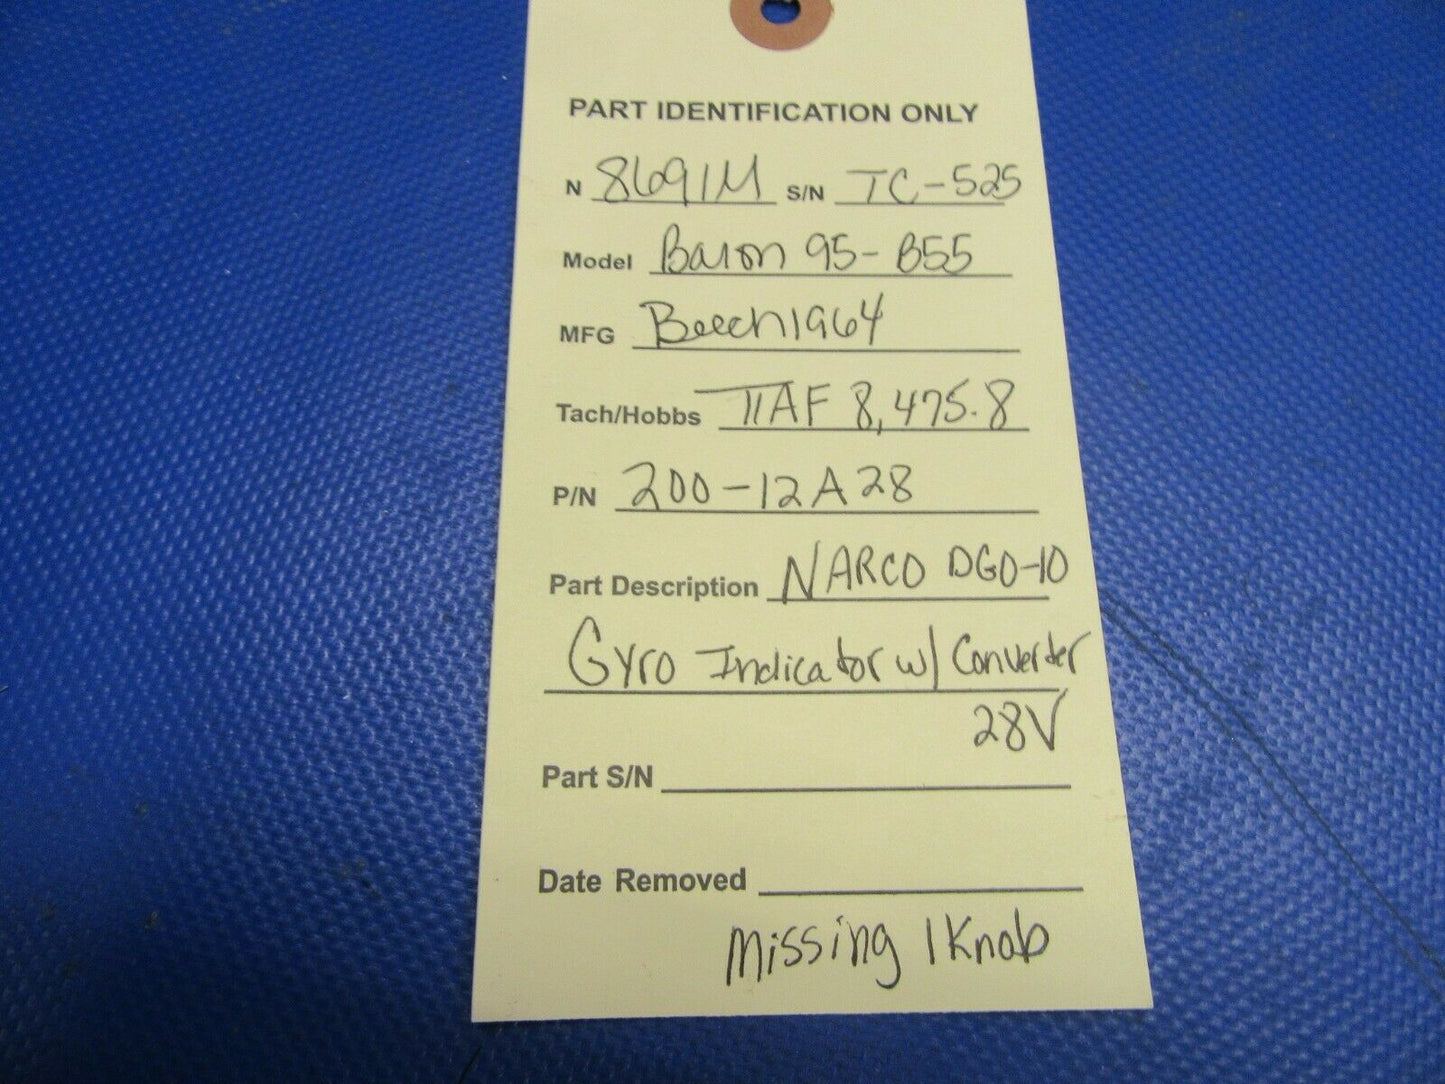 PART IDENTIFICATION ONLY
N 8691M S/N TC-525
Model Baron 95-B55
MFG Beech 1964
Tach/Hobbs TTAF 8,475.8
P/N 200-12A28
Part Description NARCO DGO-10
Gyro Indicator w/ Converter
28V
Part S/N
Date Removed
Missing 1 Knob